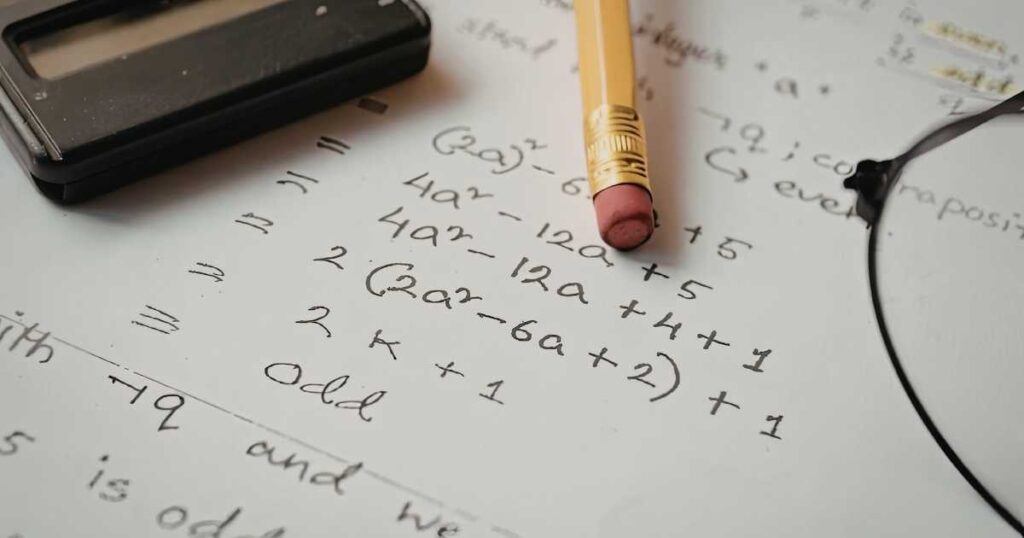 integer "a"
¬q ; co
even
raposit
= (2a)² - 6 + 5
= 4a² - 12a + 5
= 4a² - 12a + 4 + 1
= 2 (2a² - 6a + 2) + 1
= 2 k + 1
≡ Odd
ith ¬q and we
5 is odd